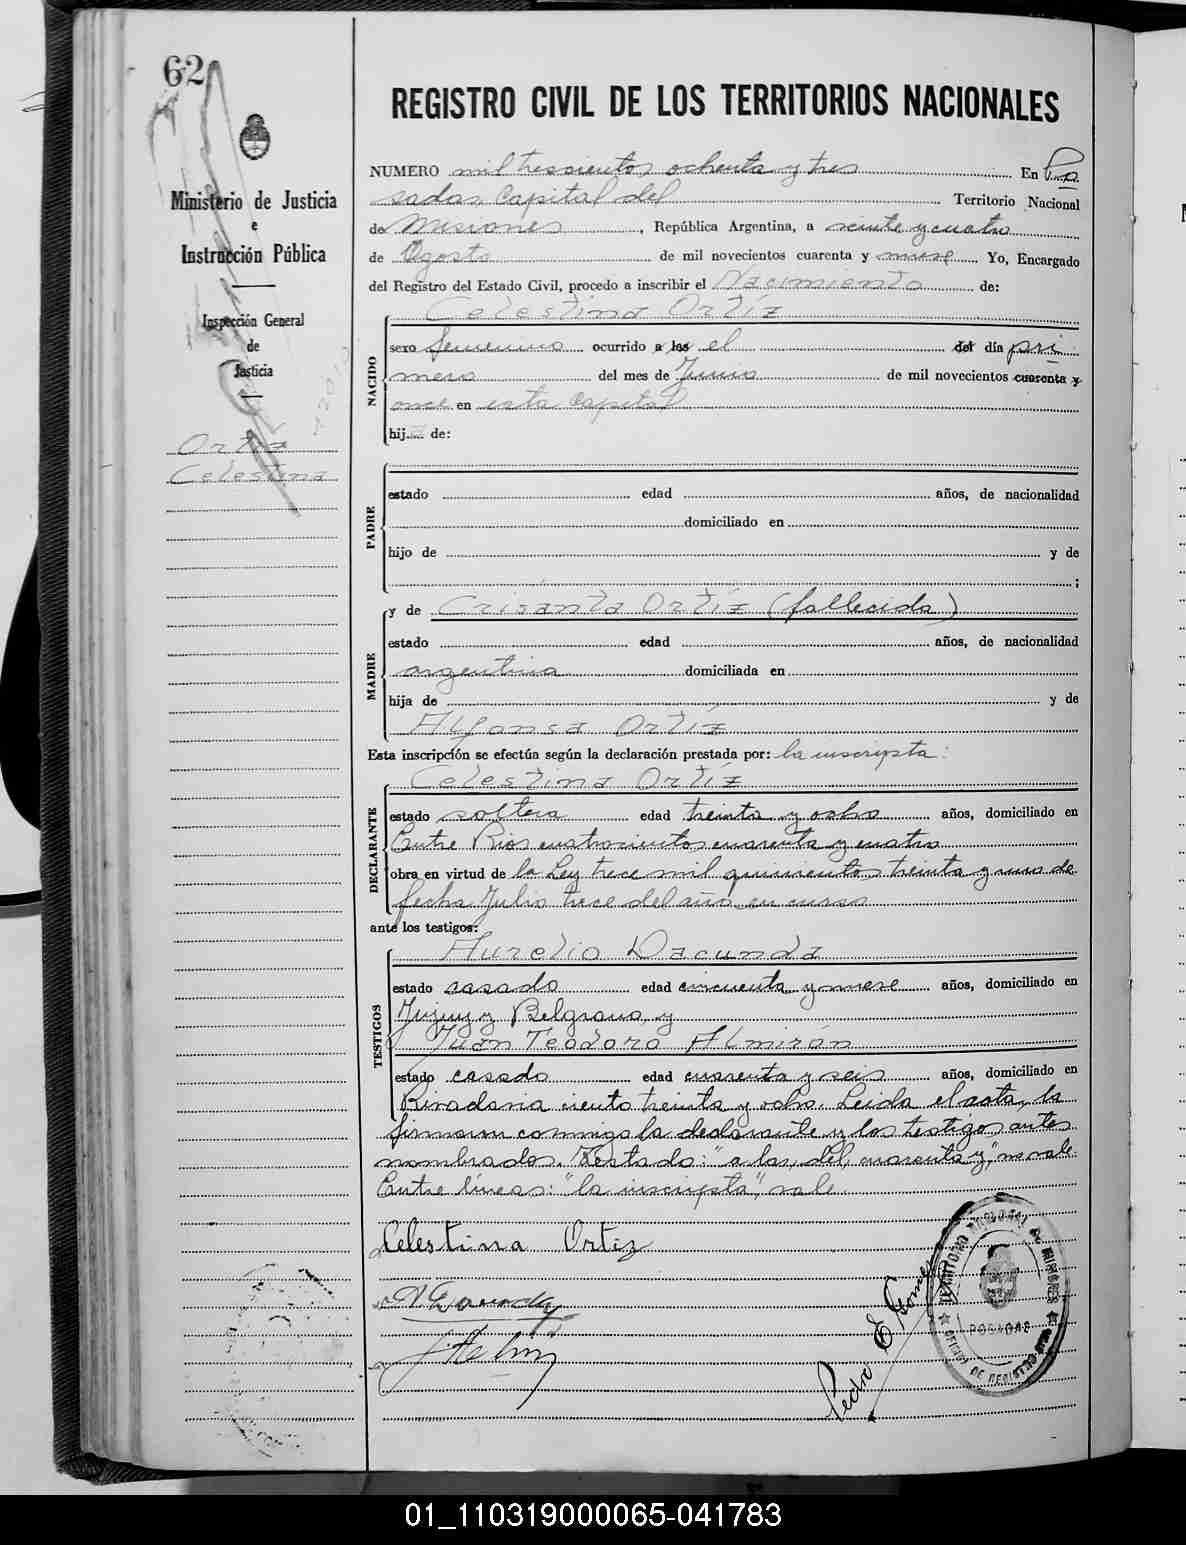 62
REGISTRO CIVIL DE LOS TERRITORIOS NACIONALES
Ministerio de Justicia
e
Instrucción Pública
Inspección General
de
Justicia
Ortíz
Celestina
NUMERO mil trescientos ochenta y tres En Po
sadas, Capital del Territorio Nacional
de Misiones, República Argentina, a veinte y cuatro
de Agosto de mil novecientos cuarenta y nueve Yo, Encargado
del Registro del Estado Civil, procedo a inscribir el Nacimiento de:
Celestina Ortíz
NACIDO
sexo femenino ocurrido a las el del día pri
mero del mes de Junio de mil novecientos cuarenta y
once en esta Capital
hij de:
PADRE
estado edad años, de nacionalidad
domiciliado en
hijo de y de
;
MADRE
y de Crisanta Ortíz (fallecida)
estado edad años, de nacionalidad
argentina domiciliada en
hija de y de
Alfonsa Ortíz
Esta inscripción se efectúa según la declaración prestada por: la inscripta:
Celestina Ortíz
DECLARANTE
estado soltera edad treinta y ocho años, domiciliado en
Entre Rios cuatrocientos cuarenta y cuatro
obra en virtud de la Ley trece mil quinientos treinta y uno de
fecha Julio trece del año en curso
ante los testigos:
Aurelio Dacunda
TESTIGOS
estado casado edad cincuenta y nueve años, domiciliado en
Jujuy y Belgrano y
Juan Teodoro Almirón
estado casado edad cuarenta y seis años, domiciliado en
Rivadavia ciento treinta y ocho. Leida el acta, la
firmaron conmigo la declarante y los testigos antes
nombrados. Testado: "a las, del, cuarenta y," no vale.
Entre líneas: "la inscripta", vale.
Celestina Ortiz
Pedro E Gomez
TERRITORIO NACIONAL DE MISIONES
POSADAS
01_110319000065-041783